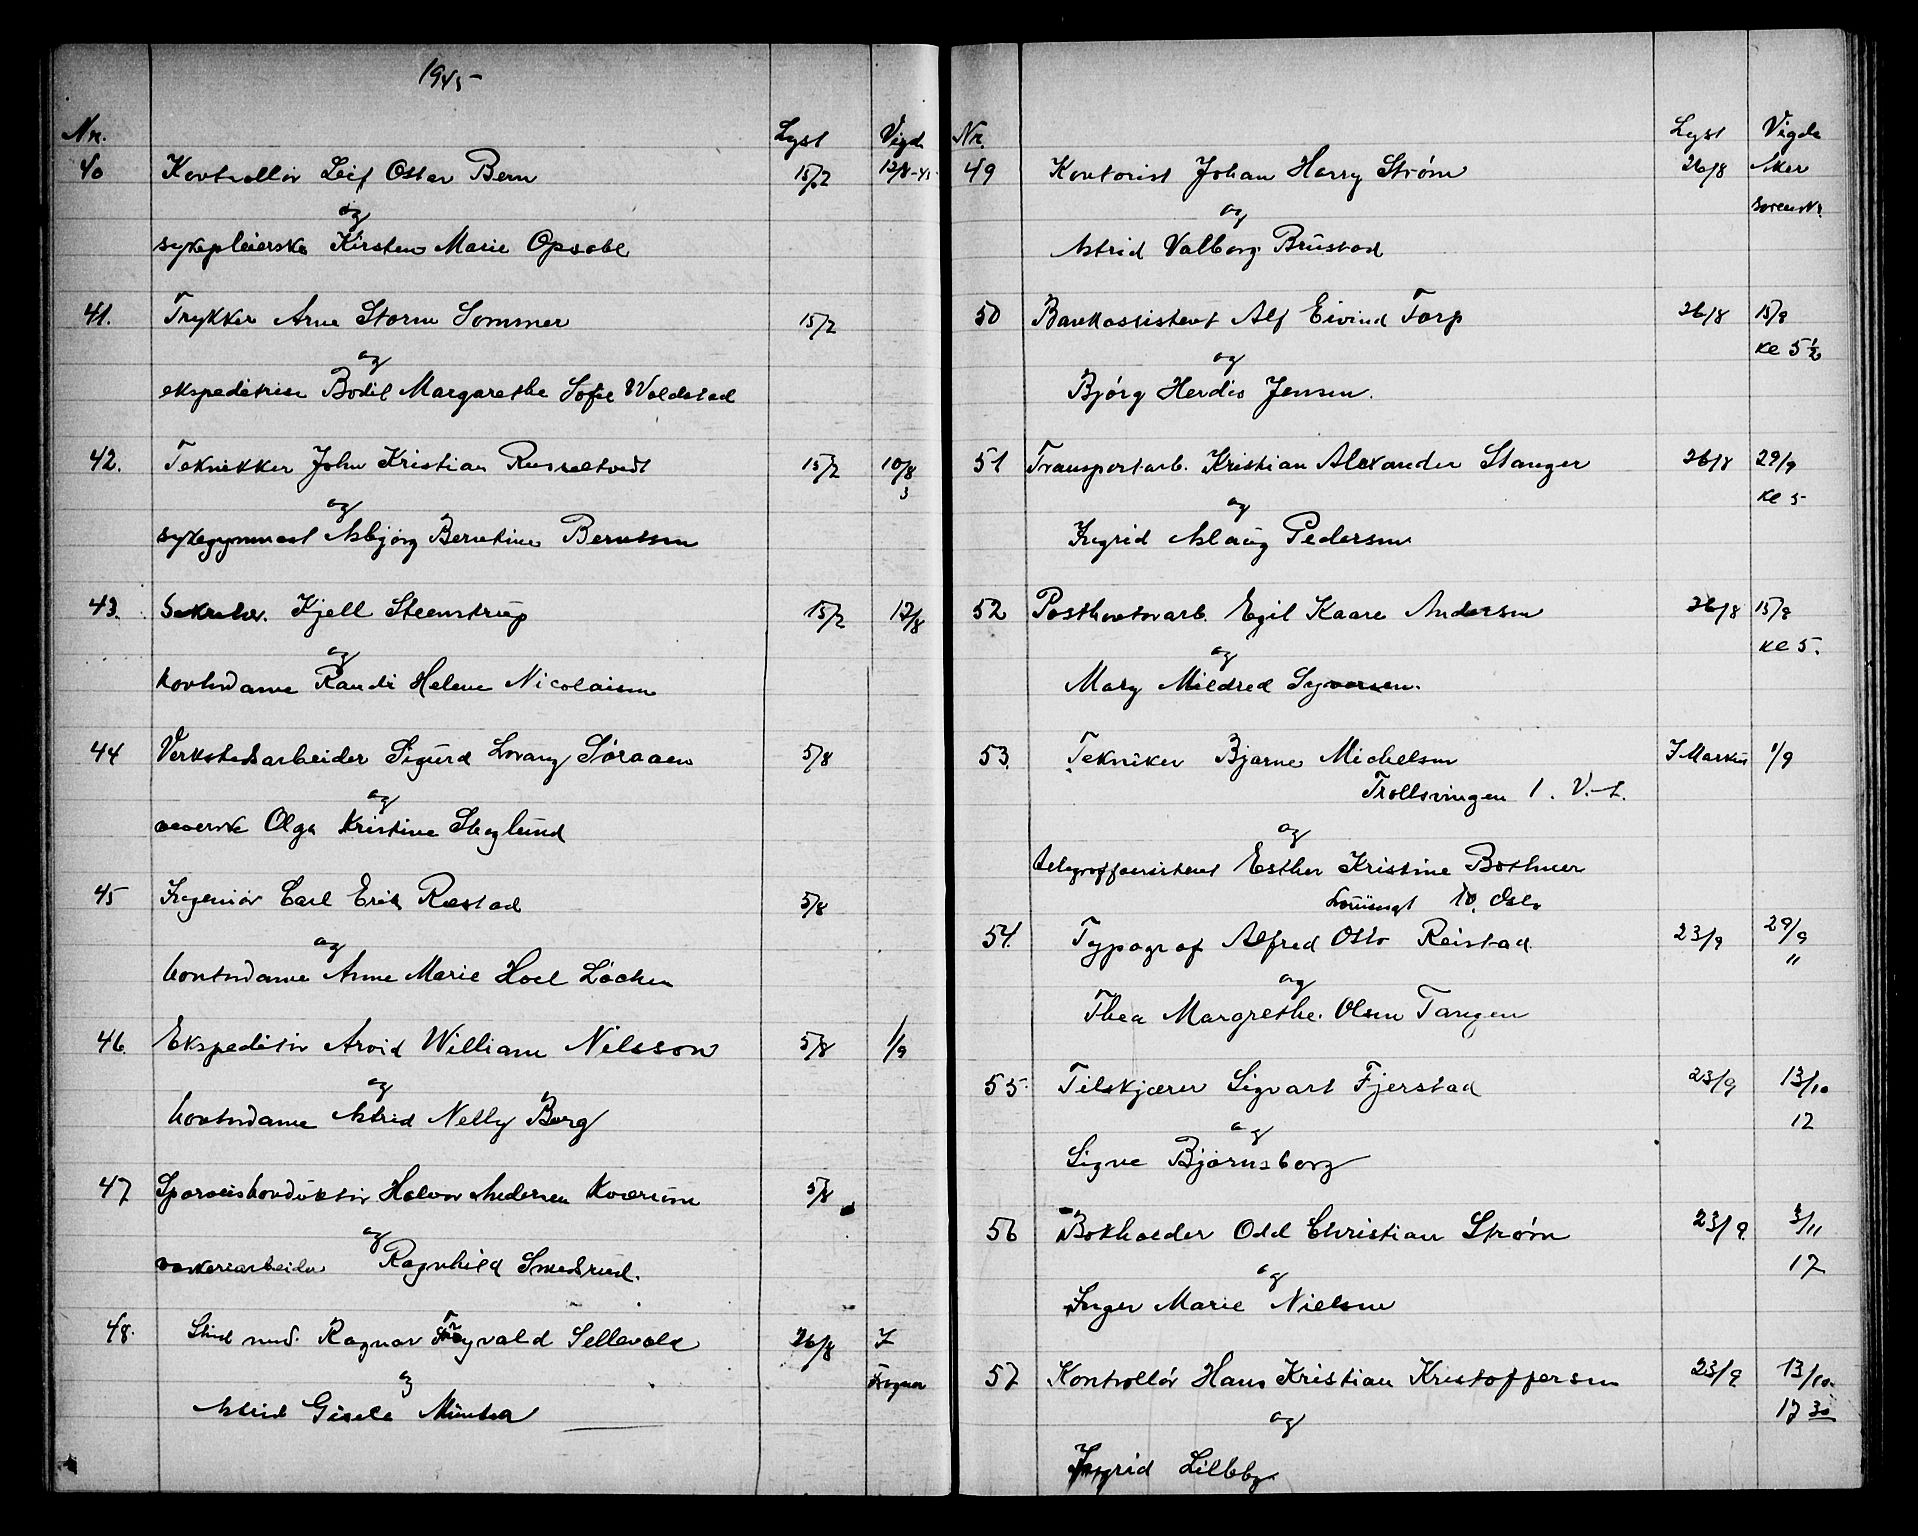 1945
Nr. Lyst Vigd
40 Kontrollør Leif Oskar Bern 15/7 12/8-45
og
sykepleierske Kirsten Marie Opsahl
41. Trykker Arne Storm Sommer 15/7
og
ekspeditrise Bodil Margarethe Sofie Woldstad
42. Teknikker John Kristian Russeltvedt 15/7 10/8
3
og
sykegymnast Asbjørg Berntine Berntsen
43. Sekretær. Kjell Steenstrup 15/7 12/8
og
kontordame Randi Helene Nicolaisen
44 Verkstedsarbeider Sigurd Søraaen 5/8
og
veverske Olga Kristine Skoglund
45 Ingeniør Carl Erik Rastad 5/8
og
kontordame Anne Marie Hoel Løchen
46. Ekspeditør Arvid William Nilsson 5/8 1/9
og
kontordame Astrid Nelly Berg
47 Sporveiskonduktør Halvor Andersen Kværum 5/8
og
vaskeriarbeider Ragnhild Smedsrud.
48. Stud med. Ragnar Trygvald Sellevold 26/8 I
Frogner
og
Astrid Gisela Münster
Nr. Lyst Vigde
49 Kontorist Johan Harry Strøm 26/8 Aker
sorenskr.
og
Astrid Valborg Brustad
50 Bankassistent Alf Eivind Torp 26/8 15/9
kl 5 1/2
og
Bjørg Herdis Jensen.
51 Transportarb. Kristian Alexander Stanger 26/8 29/9
kl 5
og
Ingrid Aslaug Pedersen
52 Postkontorarb. Egil Kaare Andersen 26/8 15/9
kl 5.
og
Mary Mildred Syversen.
53. Tekniker Bjarne Michelsen I Markus 1/9
Trollsvingen 1. V.A.
og
telegrafassistent Esther Kristine Bothner
Louisesgt 10. Oslo
54. Typograf Alfred Otto Reistad 23/9 29/9
"
og
Thea Margrethe Olsen Tangen
55. Tilskjærer Sigvart Fjerstad 23/9 13/10
17
og
Signe Bjørnsborg
56 Bokholder Odd Christian Strøm 23/9 3/11
17
og
Inger Marie Nielsen
57 Kontrollør Hans Kristian Kristoffersen 23/9 13/10.
17 30
og
Ingrid Lilleby